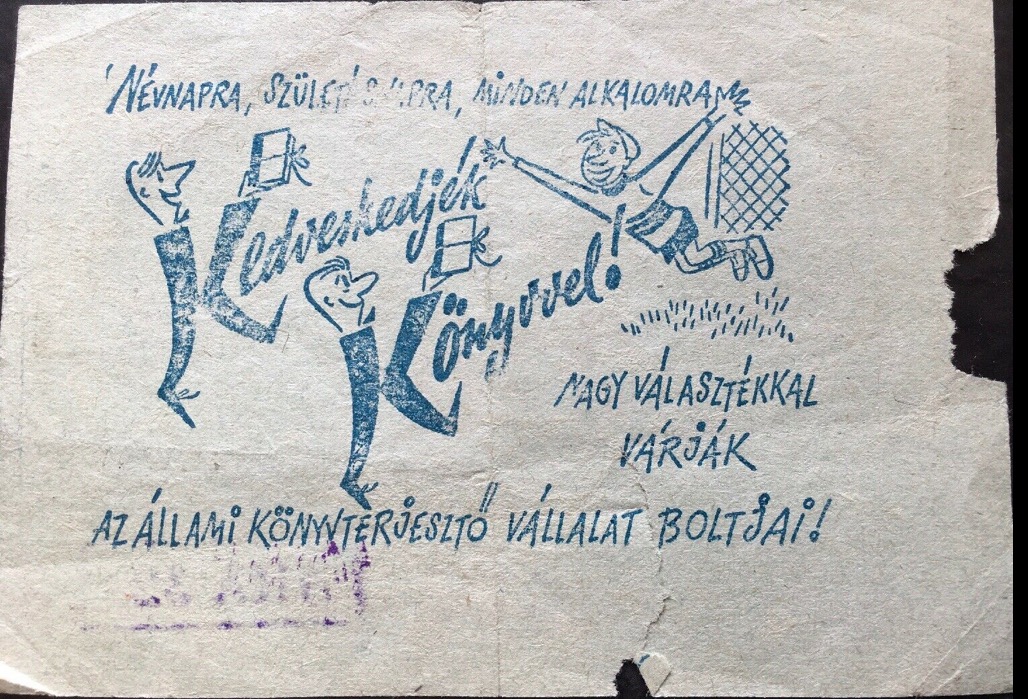 NÉVNAPRA, SZÜLETÉSNAPRA, MINDEN ALKALOMRA
Kedveskedjék
Könyvvel!
NAGY VÁLASZTÉKKAL
VÁRJÁK
AZ ÁLLAMI KÖNYVTERJESZTŐ VÁLLALAT BOLTJAI!